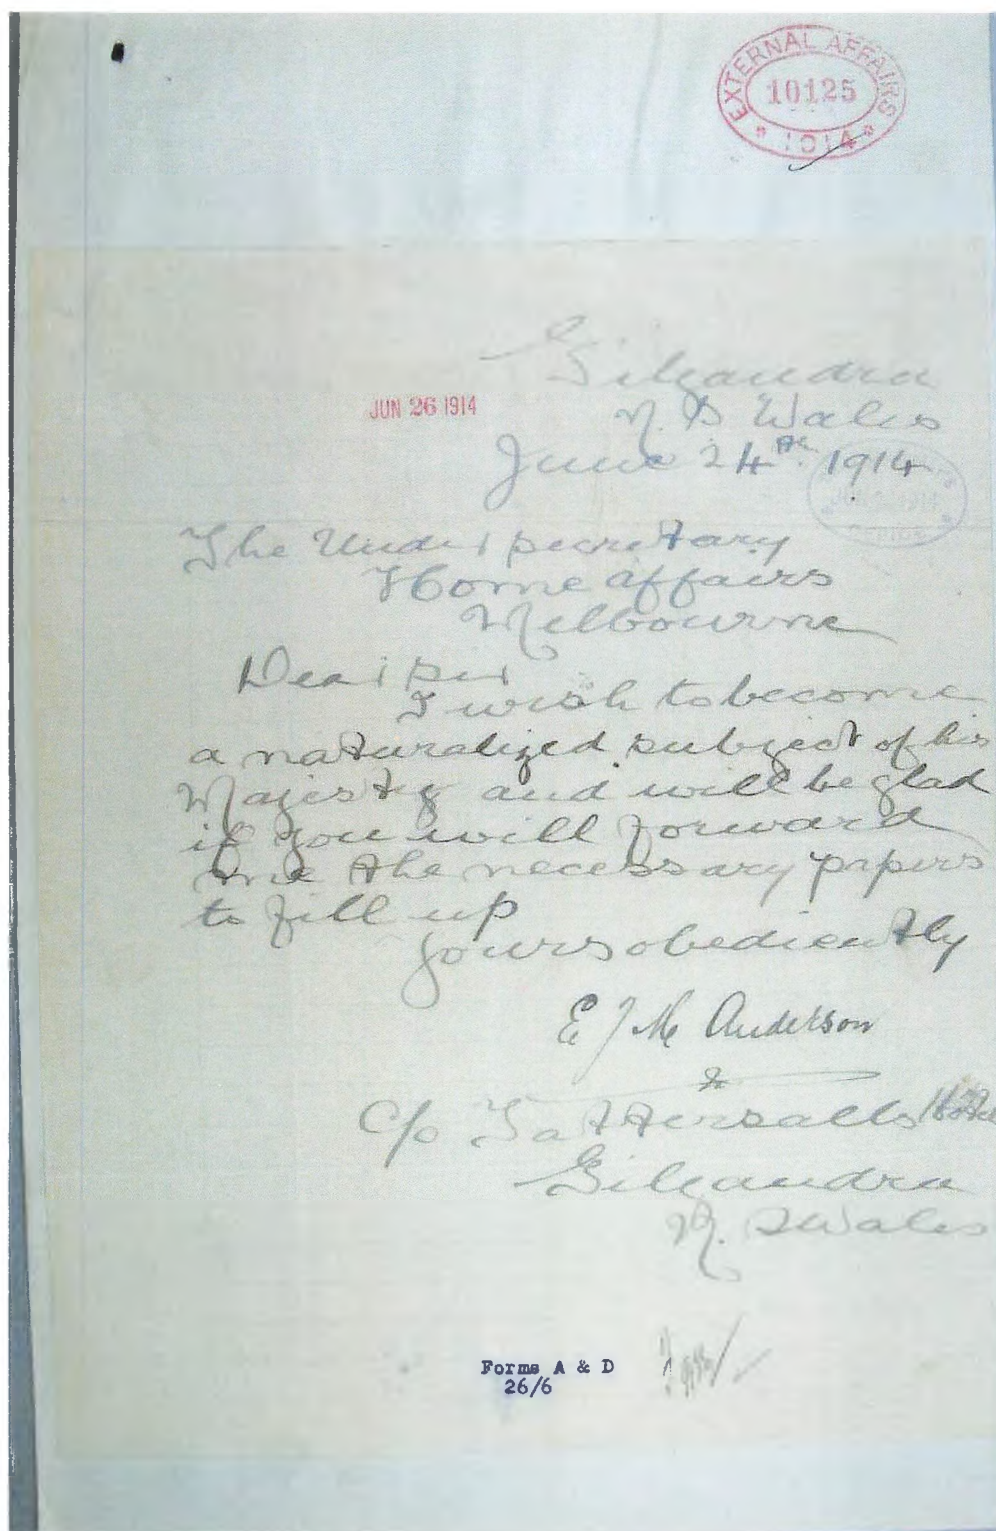 EXTERNAL AFFAIRS
10125
1914
Gilgandra
JUN 26 1914
N. S Wales
June 24th. 1914
The Under Secretary
Home affairs
Melbourne
Dear Sir
I wish to become
a naturalized subject of his
Majesty and will be glad
if you will forward
me the necessary papers
to fill up
yours obediently
E J M Anderson
c/o Tattersalls Hotel
Gilgandra
N. S Wales
Forms A & D
26/6